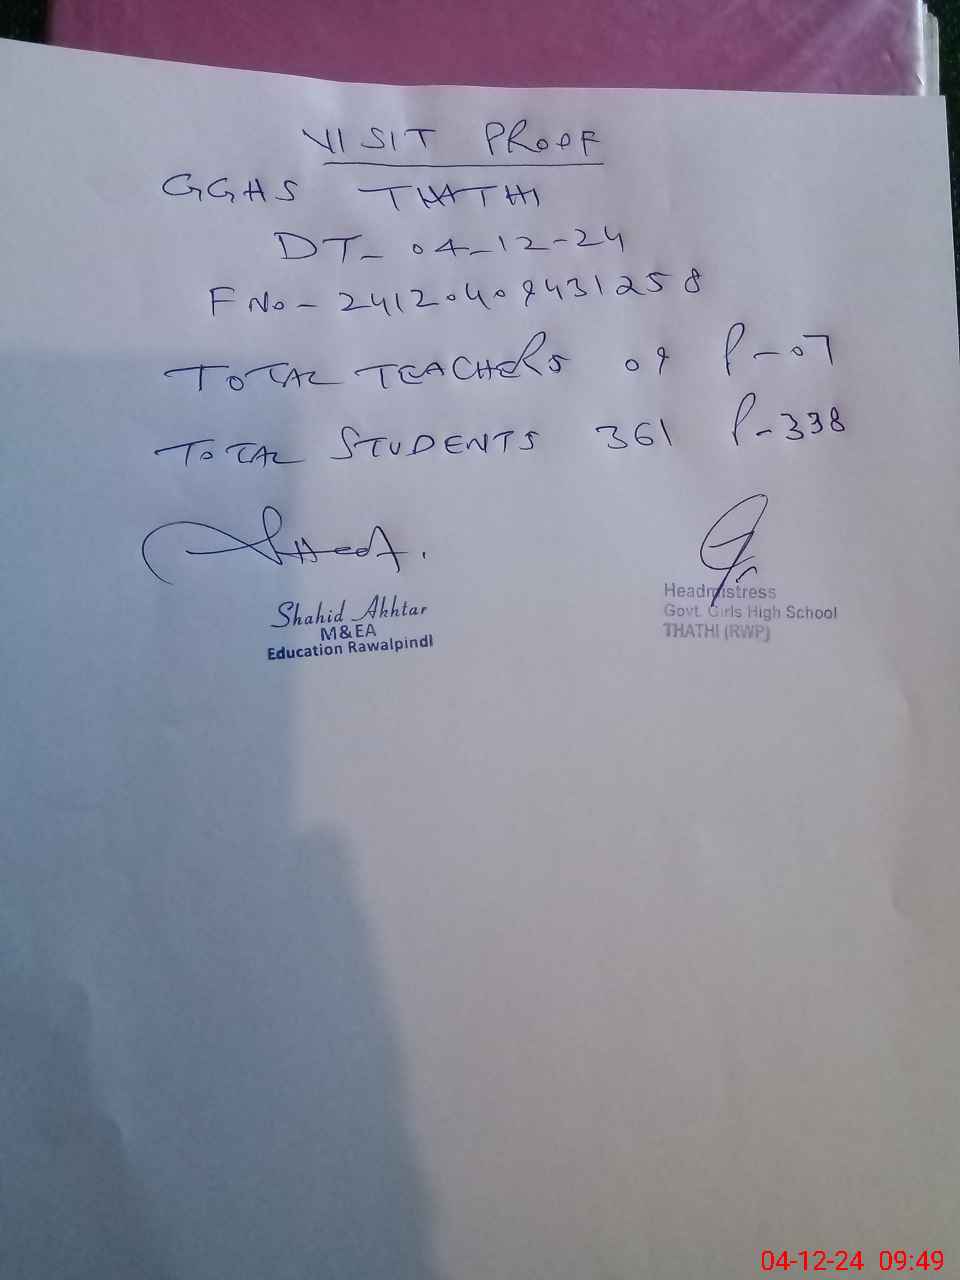 VISIT PROOF
GGHS THATHI
DT- 04-12-24
F No - 24120409431258
TOTAL TEACHERS 09 P-07
TOTAL STUDENTS 361 P-338
Shahid Akhtar
M&EA
Education Rawalpindi
Headmistress
Govt. Girls High School
THATHI (RWP)
04-12-24 09:49